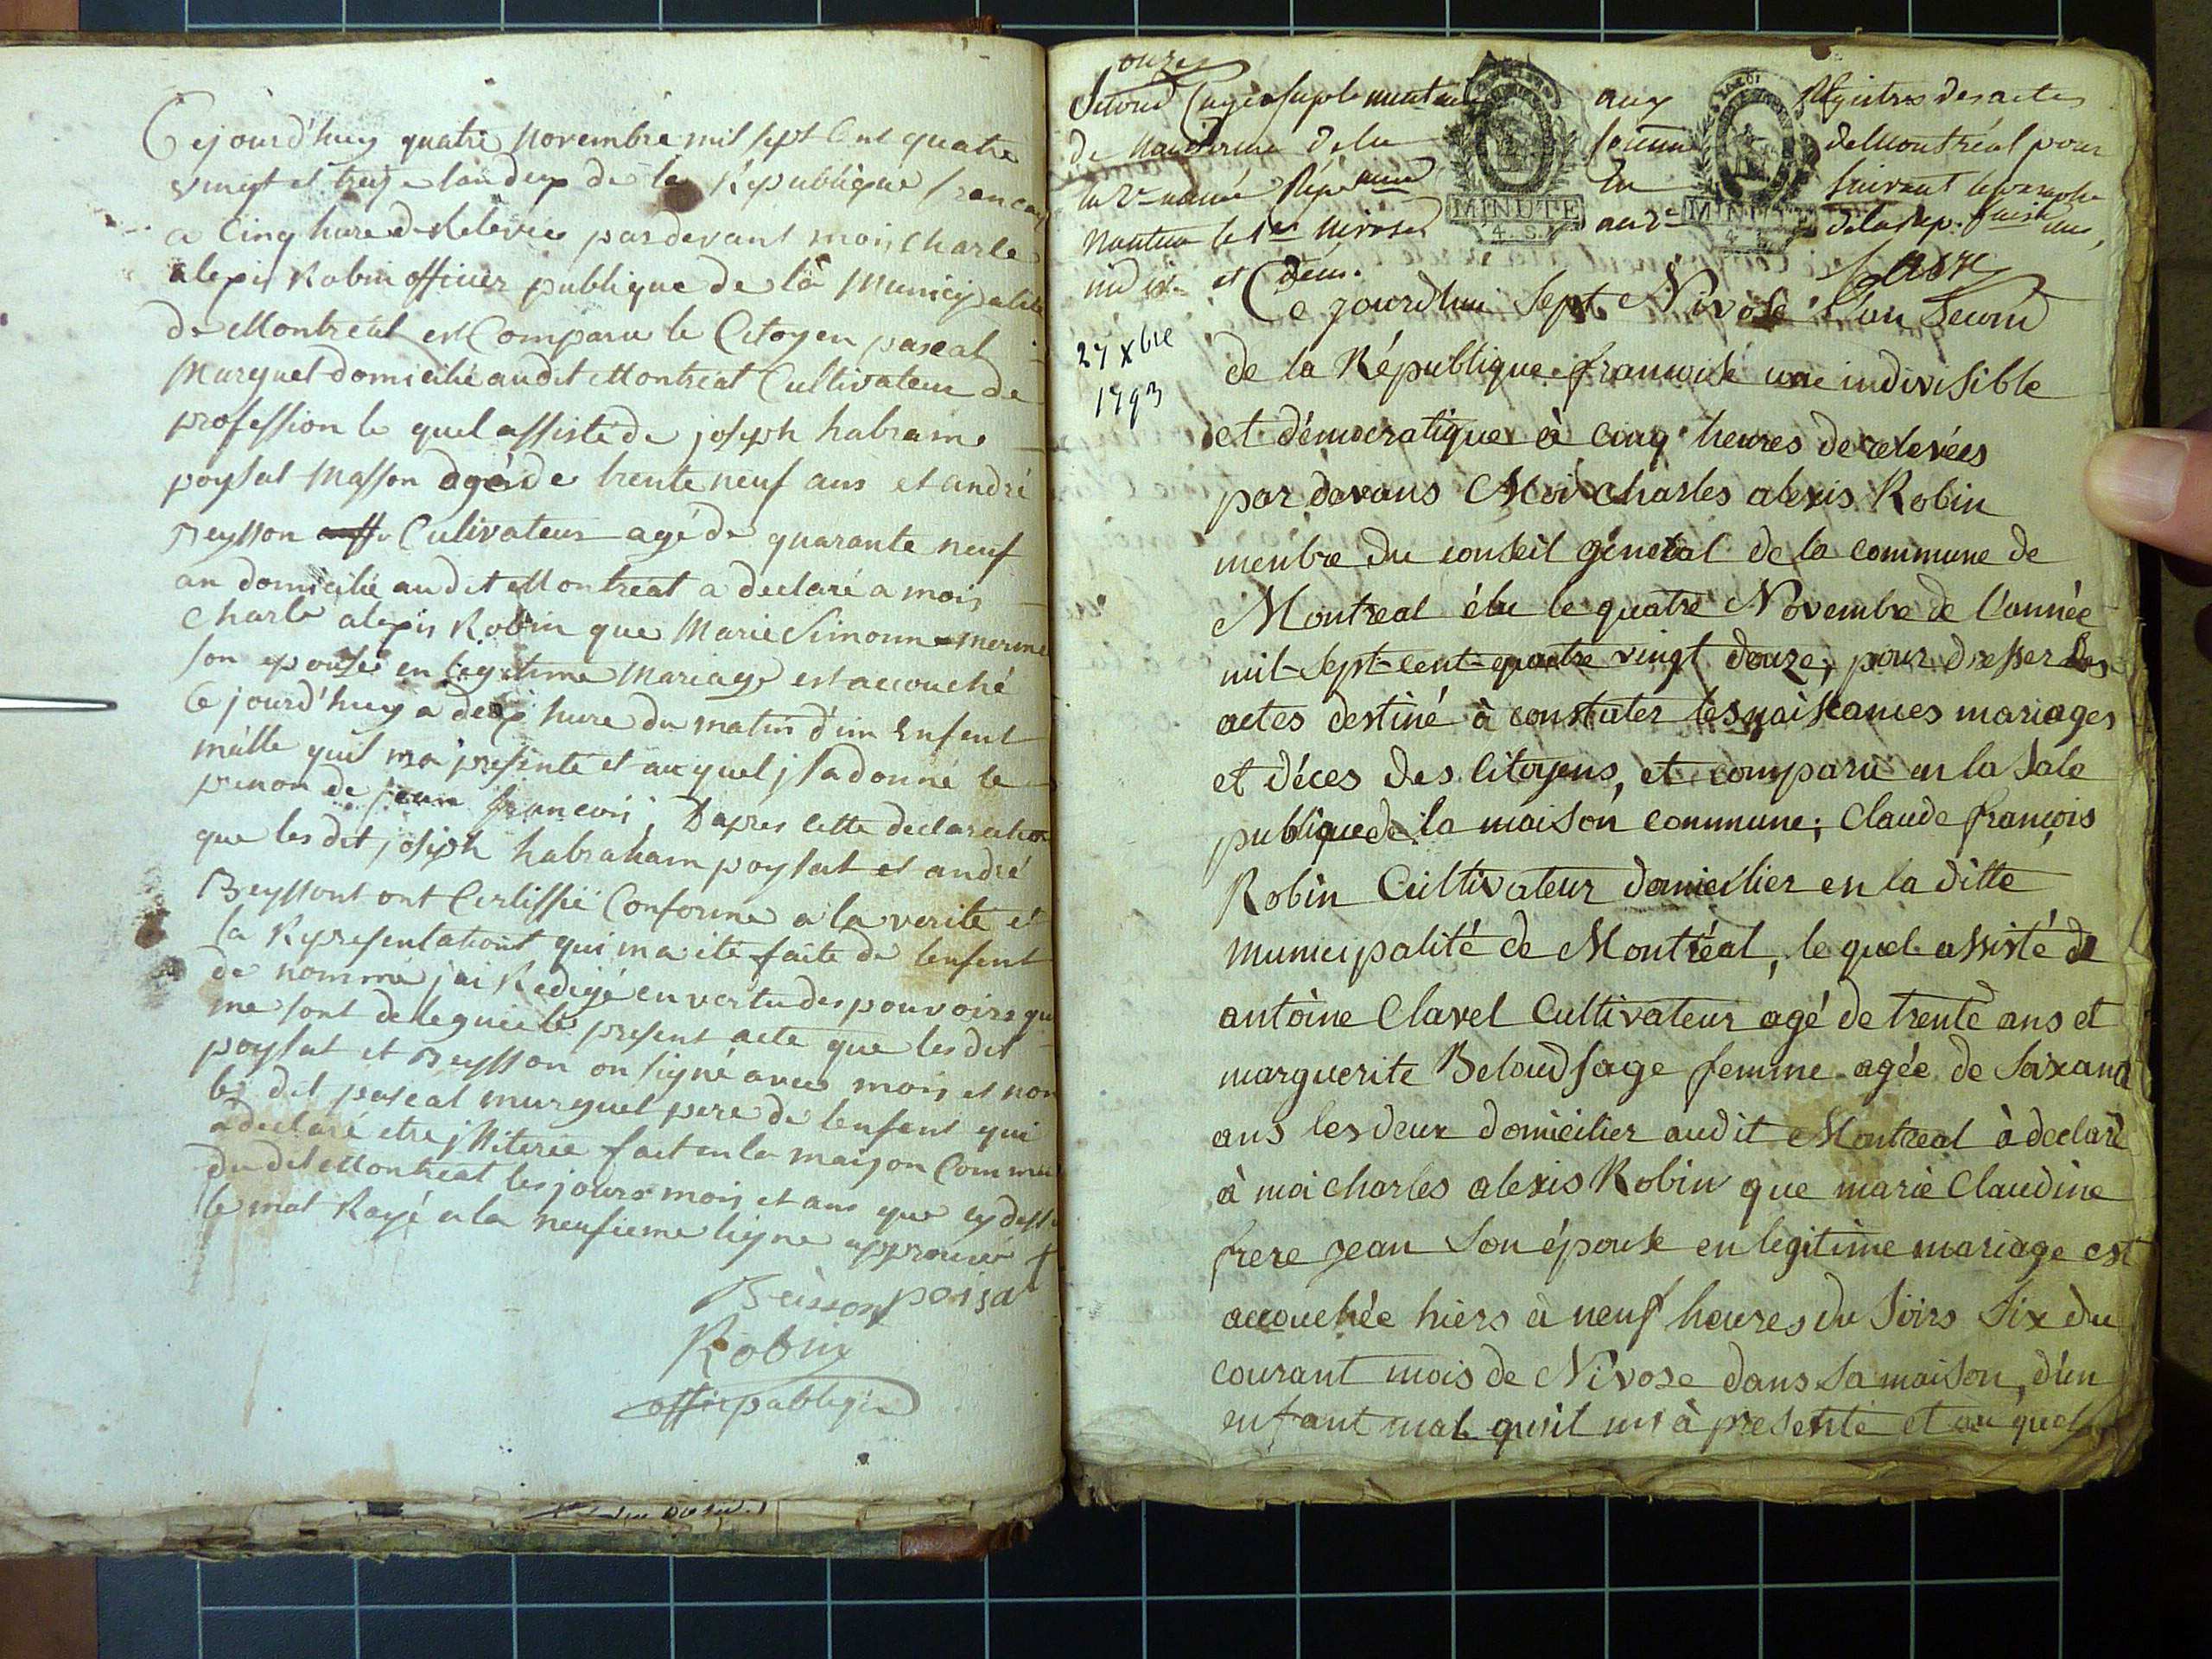 Cejourd'huy quatre Novembre mil sept Cent quatre
vingt et treze lan deux de la République francaise
a Cinq hure de Relevée pardevant mois Charle
alexis Robin officier publique de la Municipalité
de Montréal est Comparu le Citoyen pascal
Murguet domicilié audit Montréal Cultivateur de
profession le quel assisté de joseph habram
poysat Masson agé de trente neuf ans et andré
Beysson Cultivateur agé de quarante neuf
an domicilié au dit Montréal a declaré a mois
Charle alexis Robin que Marie Simonne Mermet
son epouse en legitime Mariage est accouché
Ce jourd'huy a deux hure du matin d'un Enfent
mâlle quil ma presenté et auquel j la donné le
prenon de jean francois; Dapres cette declaration
que les dit joseph habraham poysat et andré
Beyssont ont Certiffié Conforme a la verité et
la Representationt qui ma été faite de lenfent
de nommé jai Redigé en vertu des pouvoirs qui
me sont delegués le present acte que lesdit
poysat et Beysson on signé avec mois et non
le dit pascal murguet pere de lenfent qui
a declaré etre jlliteree fait en la maison Commune
du dit Montréal les jours mois et ans que cy dessus
le mot Rayé a la neufieme ligne approuvé
Beisson poisat
Robin
offic publique
onze
Second Cayé suplementaire aux Registres des actes
de Naissance de la commune de Montréal pour
la 2e année Répu
Nantua le 1er nivose an 2e de la Rép. fran une,
indiv. et dém.
27 Xbre
1793
Ce jourd'hui Sept Nivose l'an Second
de la République francoise une indivisible
et démocratique à cinq heures de relevées
par devans Moi charles alexis Robin
menbre du conseil général de la commune de
Montreal élu le quatre Novembre de l'année
mil-sept-cent-quatre vingt douze, pour dresser les
actes destiné à constater les naissances mariages
et déces des Citoyens, et comparu en la Sale
publique de la maison commune; Claude françois
Robin Cultivateur domicilier en la ditte
municipalité de Montréal, le quel assisté de
antoine Clavel Cultivateur agé de trente ans et
marguerite Beloud sage femme agée de Soixante
ans les deux domicilier audit Montreal à declaré
à moi charles alexis Robin que marie Claudine
frere jean Son épouse en legitime mariage est
accouchée hiers à neuf heures du Soirs Six du
courant mois de Nivose dans Sa maison, d'un
enfant male qu'il m'à presenté et au quel
MINUTE
4. S.
MINUTE